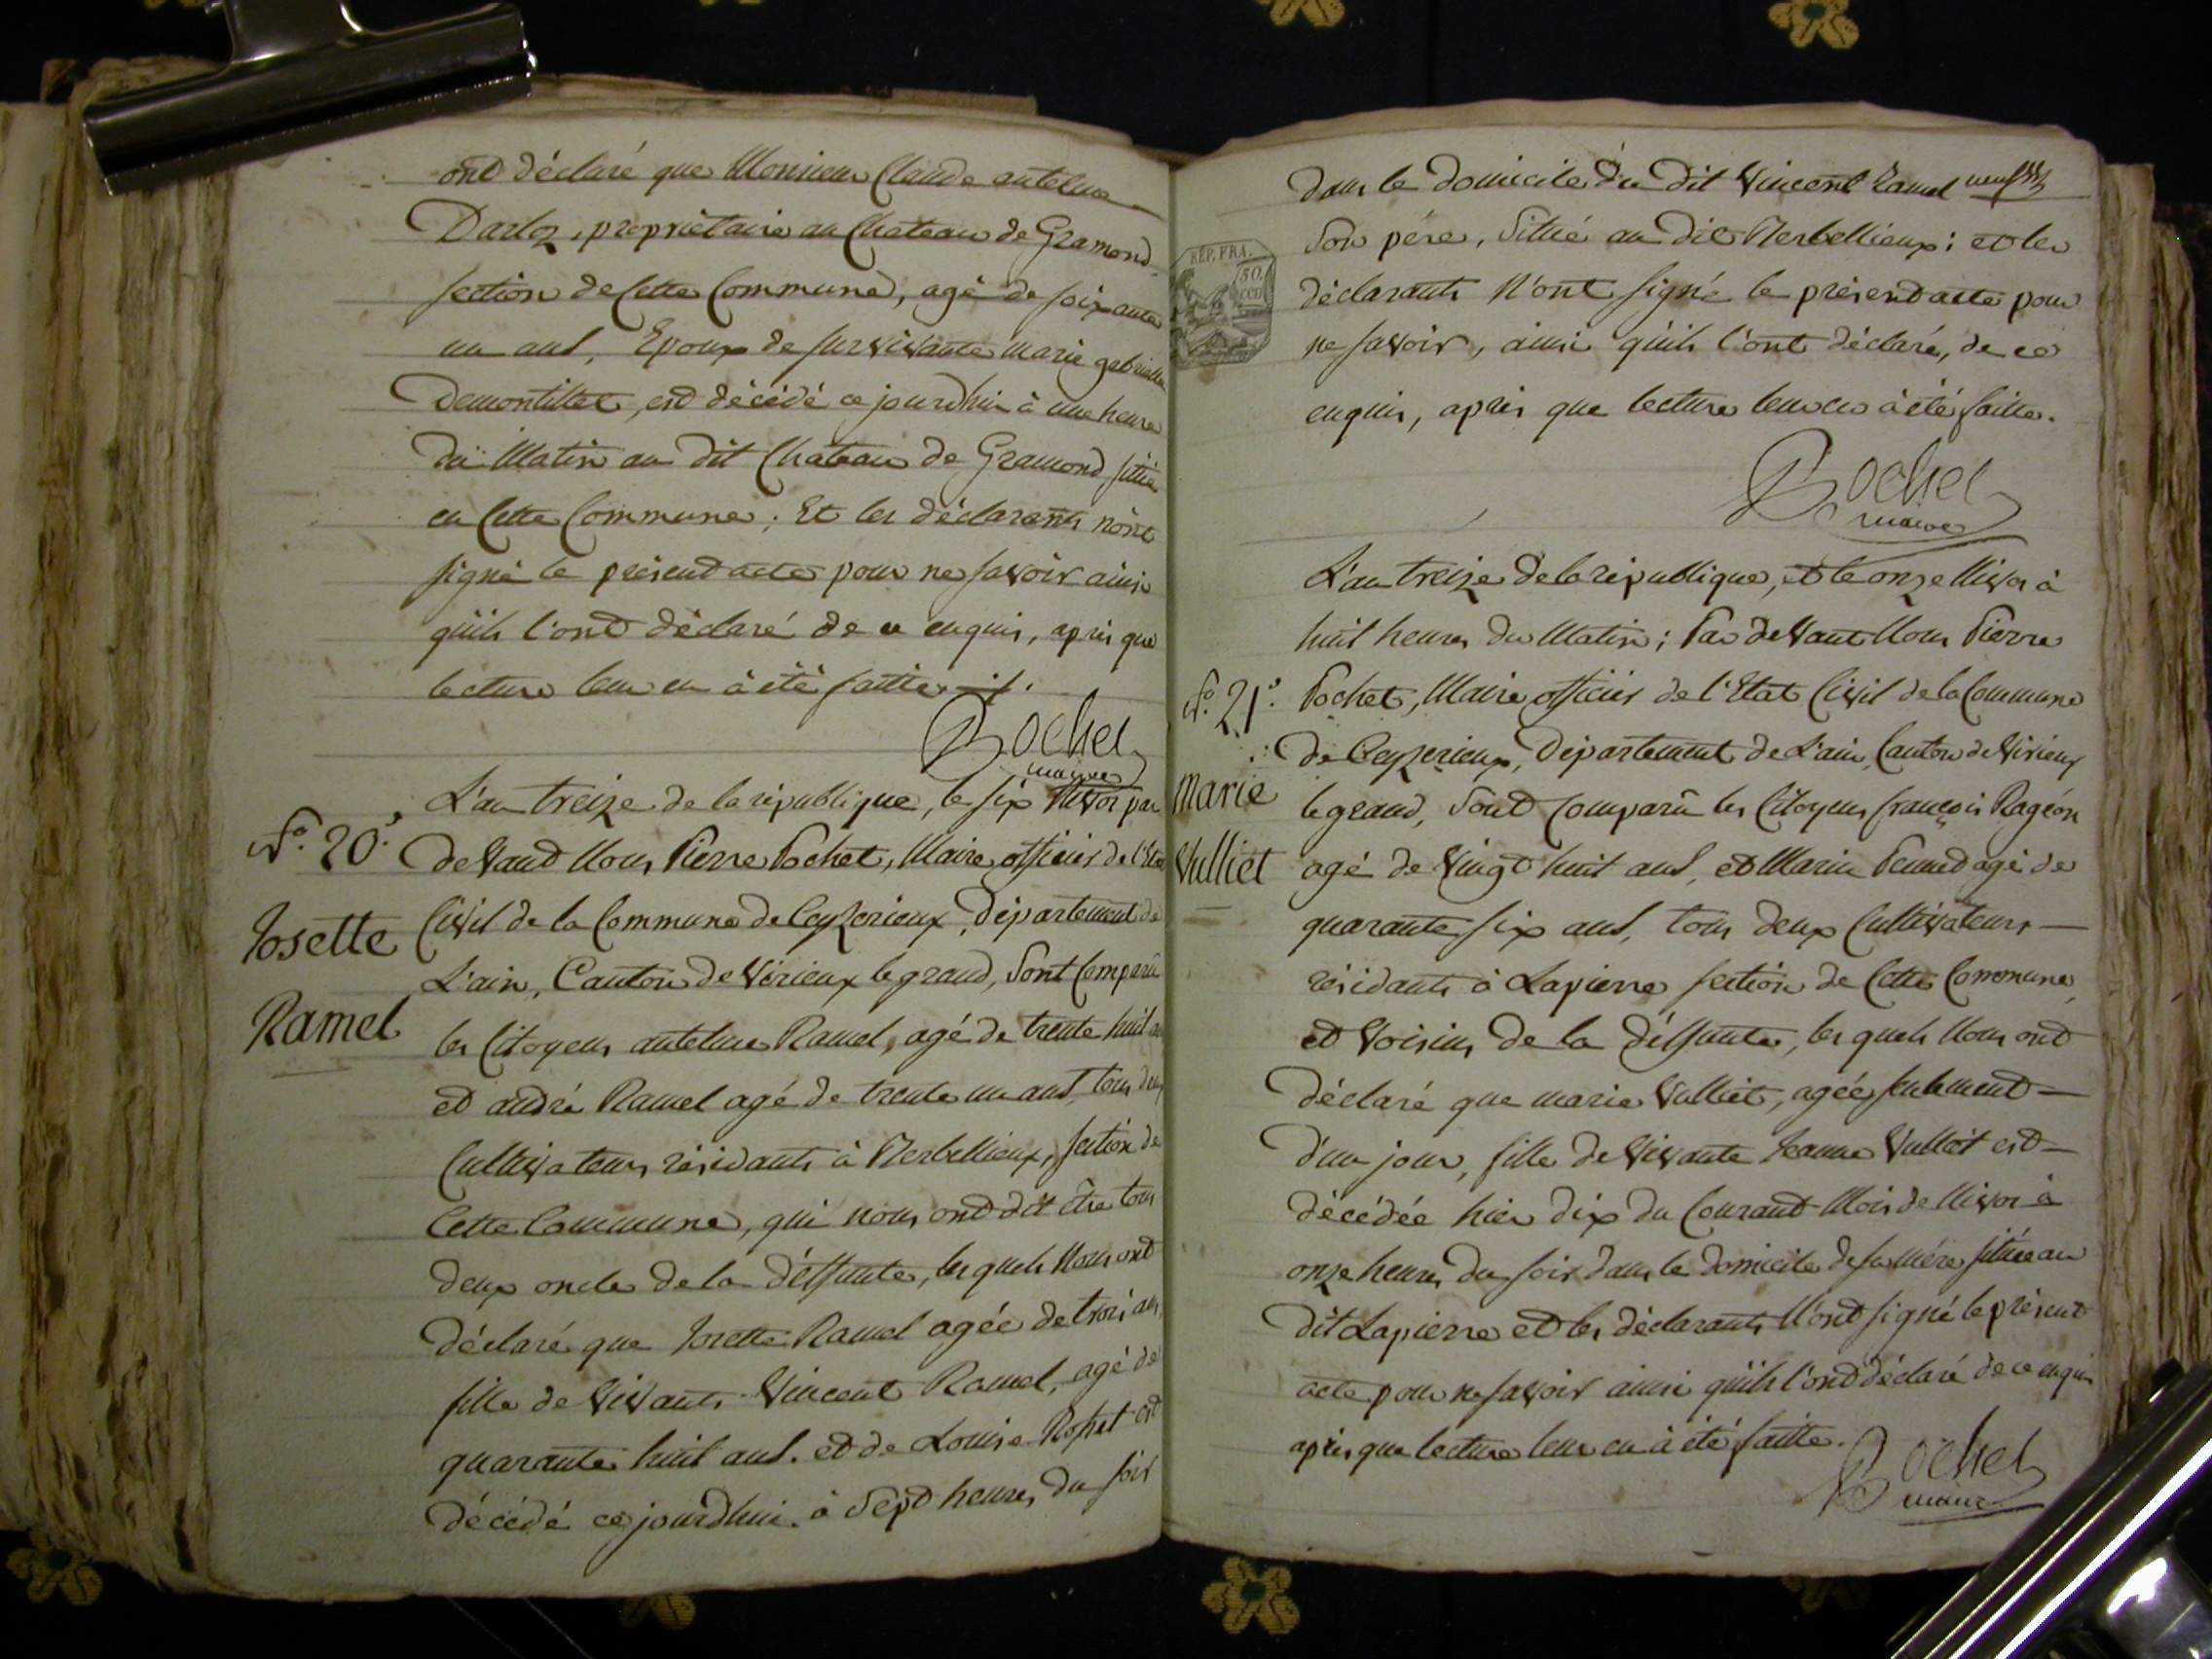 ont déclaré que Monsieur Claude antelme
Darloz, propriétaire au Chateau de Gramond
section de Cette Commune, agé de soixante
un ans, Epoux de survivante marie gabrielle
Demontillet, est décédé ce jourdhui à une heure
du Matin au dit Chateau de Gramond sitüé
en Cette Commune; Et les déclarants n'ont
signé le présent acte pour ne savoir ainsi
qu'ils l'ont déclaré de ce enquis, après que
lecture leur en à été faitte
Pochet
maire
L'an treize de la république, le six Nivos par
N.º 20.º
devant Nous Pierre Pochet, Maire officier de l'Etat
Josette
Civil de la Commune de Ceyzerieux, Département de
L'ain, Canton de Virieux le grand, Sont Comparu
Ramel
les Citoyens antelme Ramel, agé de trente huit ans
et andré Ramel agé de trente un ans, tous deux
Cultivateurs résidants à Aerbellieux, section de
Cette Commune, qui nous ont dit être tous
deux oncle de la déffunte, les quels Nous ont
déclaré que Josette Ramel agée de trois ans,
fille de vivants Vincent Ramel, agé de
quarante huit ans. et de Louise est
décédé ce jourdhui à Sept heures du soir
dans le domicile du dit Vincent Ramel
Son père, Sittué au dit Aerbellieux; et les
RÉP. FRA.
50.
cen
déclarants N'ont signé le présent acte pour
ne savoir, ainsi qu'ils l'ont déclaré, de ce
enquis, après que lecture leur en à été faitte.
Pochet
maire
L'an treize de la république, et le onze Nivos à
huit heures du Matin; Par devant Nous Pierre
N.º 21.º
Pochet, Maire officier de l'Etat Civil de la Commune
de Ceyzerieux, Département de L'ain, Canton de Virieux
Marie
le grand, Sont Comparu les Citoyens françois Ragéon
Vulliet
agé de Vingt huit ans, et Marin agé de
quarante six ans, tous deux Cultivateurs
résidants à Lapierre section de Cette Commune,
et Voisins de la déffunte, les quels Nous ont
déclaré que marie Vulliet, agée seulement
d'un jour, fille de Vivante Jeanne Vulliet est
décédée hier dix du Courant Mois de Nivos à
onze heures du soir dans le domicile de sa mére sittué au
dit Lapierre et les déclarants N'ont signé le présent
acte pour ne savoir ainsi qu'ils l'ont déclaré de ce enquis
après que lecture leur en à été faitte.
Pochet
maire